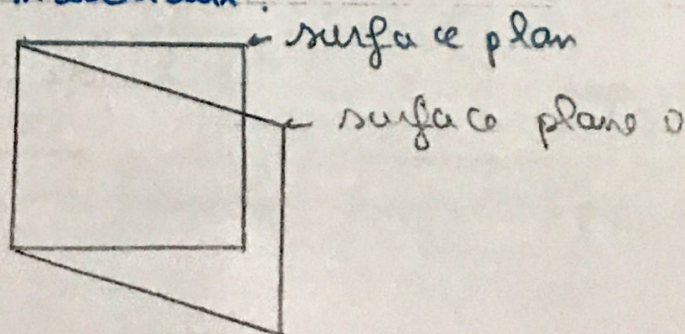 surface plan
surface plane o